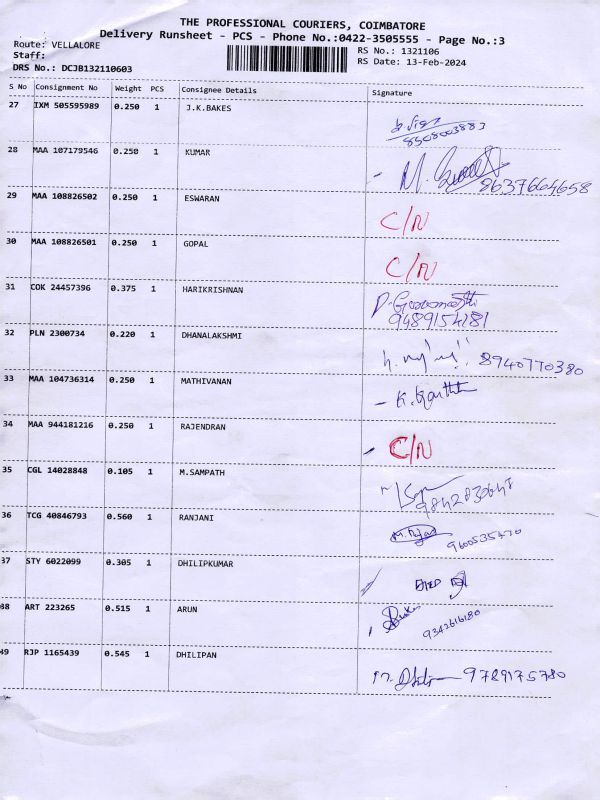 THE PROFESSIONAL COURIERS, COIMBATORE
Delivery Runsheet - PCS - Phone No.:0422-3505555 - Page No.:3
Route: VELLALORE
RS No.: 1321106
Staff:
RS Date: 13-Feb-2024
DRS No.: DCJB132110603
S No Consignment No Weight PCS Consignee Details Signature
27 IXM 505595989 0.250 1 J.K.BAKES
8508003883
28 MAA 107179546 0.250 1 KUMAR
M. 8637664658
29 MAA 108826502 0.250 1 ESWARAN
C/N
30 MAA 108826501 0.250 1 GOPAL
C/N
31 COK 24457396 0.375 1 HARIKRISHNAN
9489154181
32 PLN 2300734 0.220 1 DHANALAKSHMI
8940770380
33 MAA 104736314 0.250 1 MATHIVANAN
K. Karthik
34 MAA 944181216 0.250 1 RAJENDRAN
C/N
35 CGL 14028848 0.105 1 M.SAMPATH
36 TCG 40846793 0.560 1 RANJANI
9600535470
37 STY 6022099 0.305 1 DHILIPKUMAR
38 ART 223265 0.515 1 ARUN
9342616180
49 RJP 1165439 0.545 1 DHILIPAN
9789175780